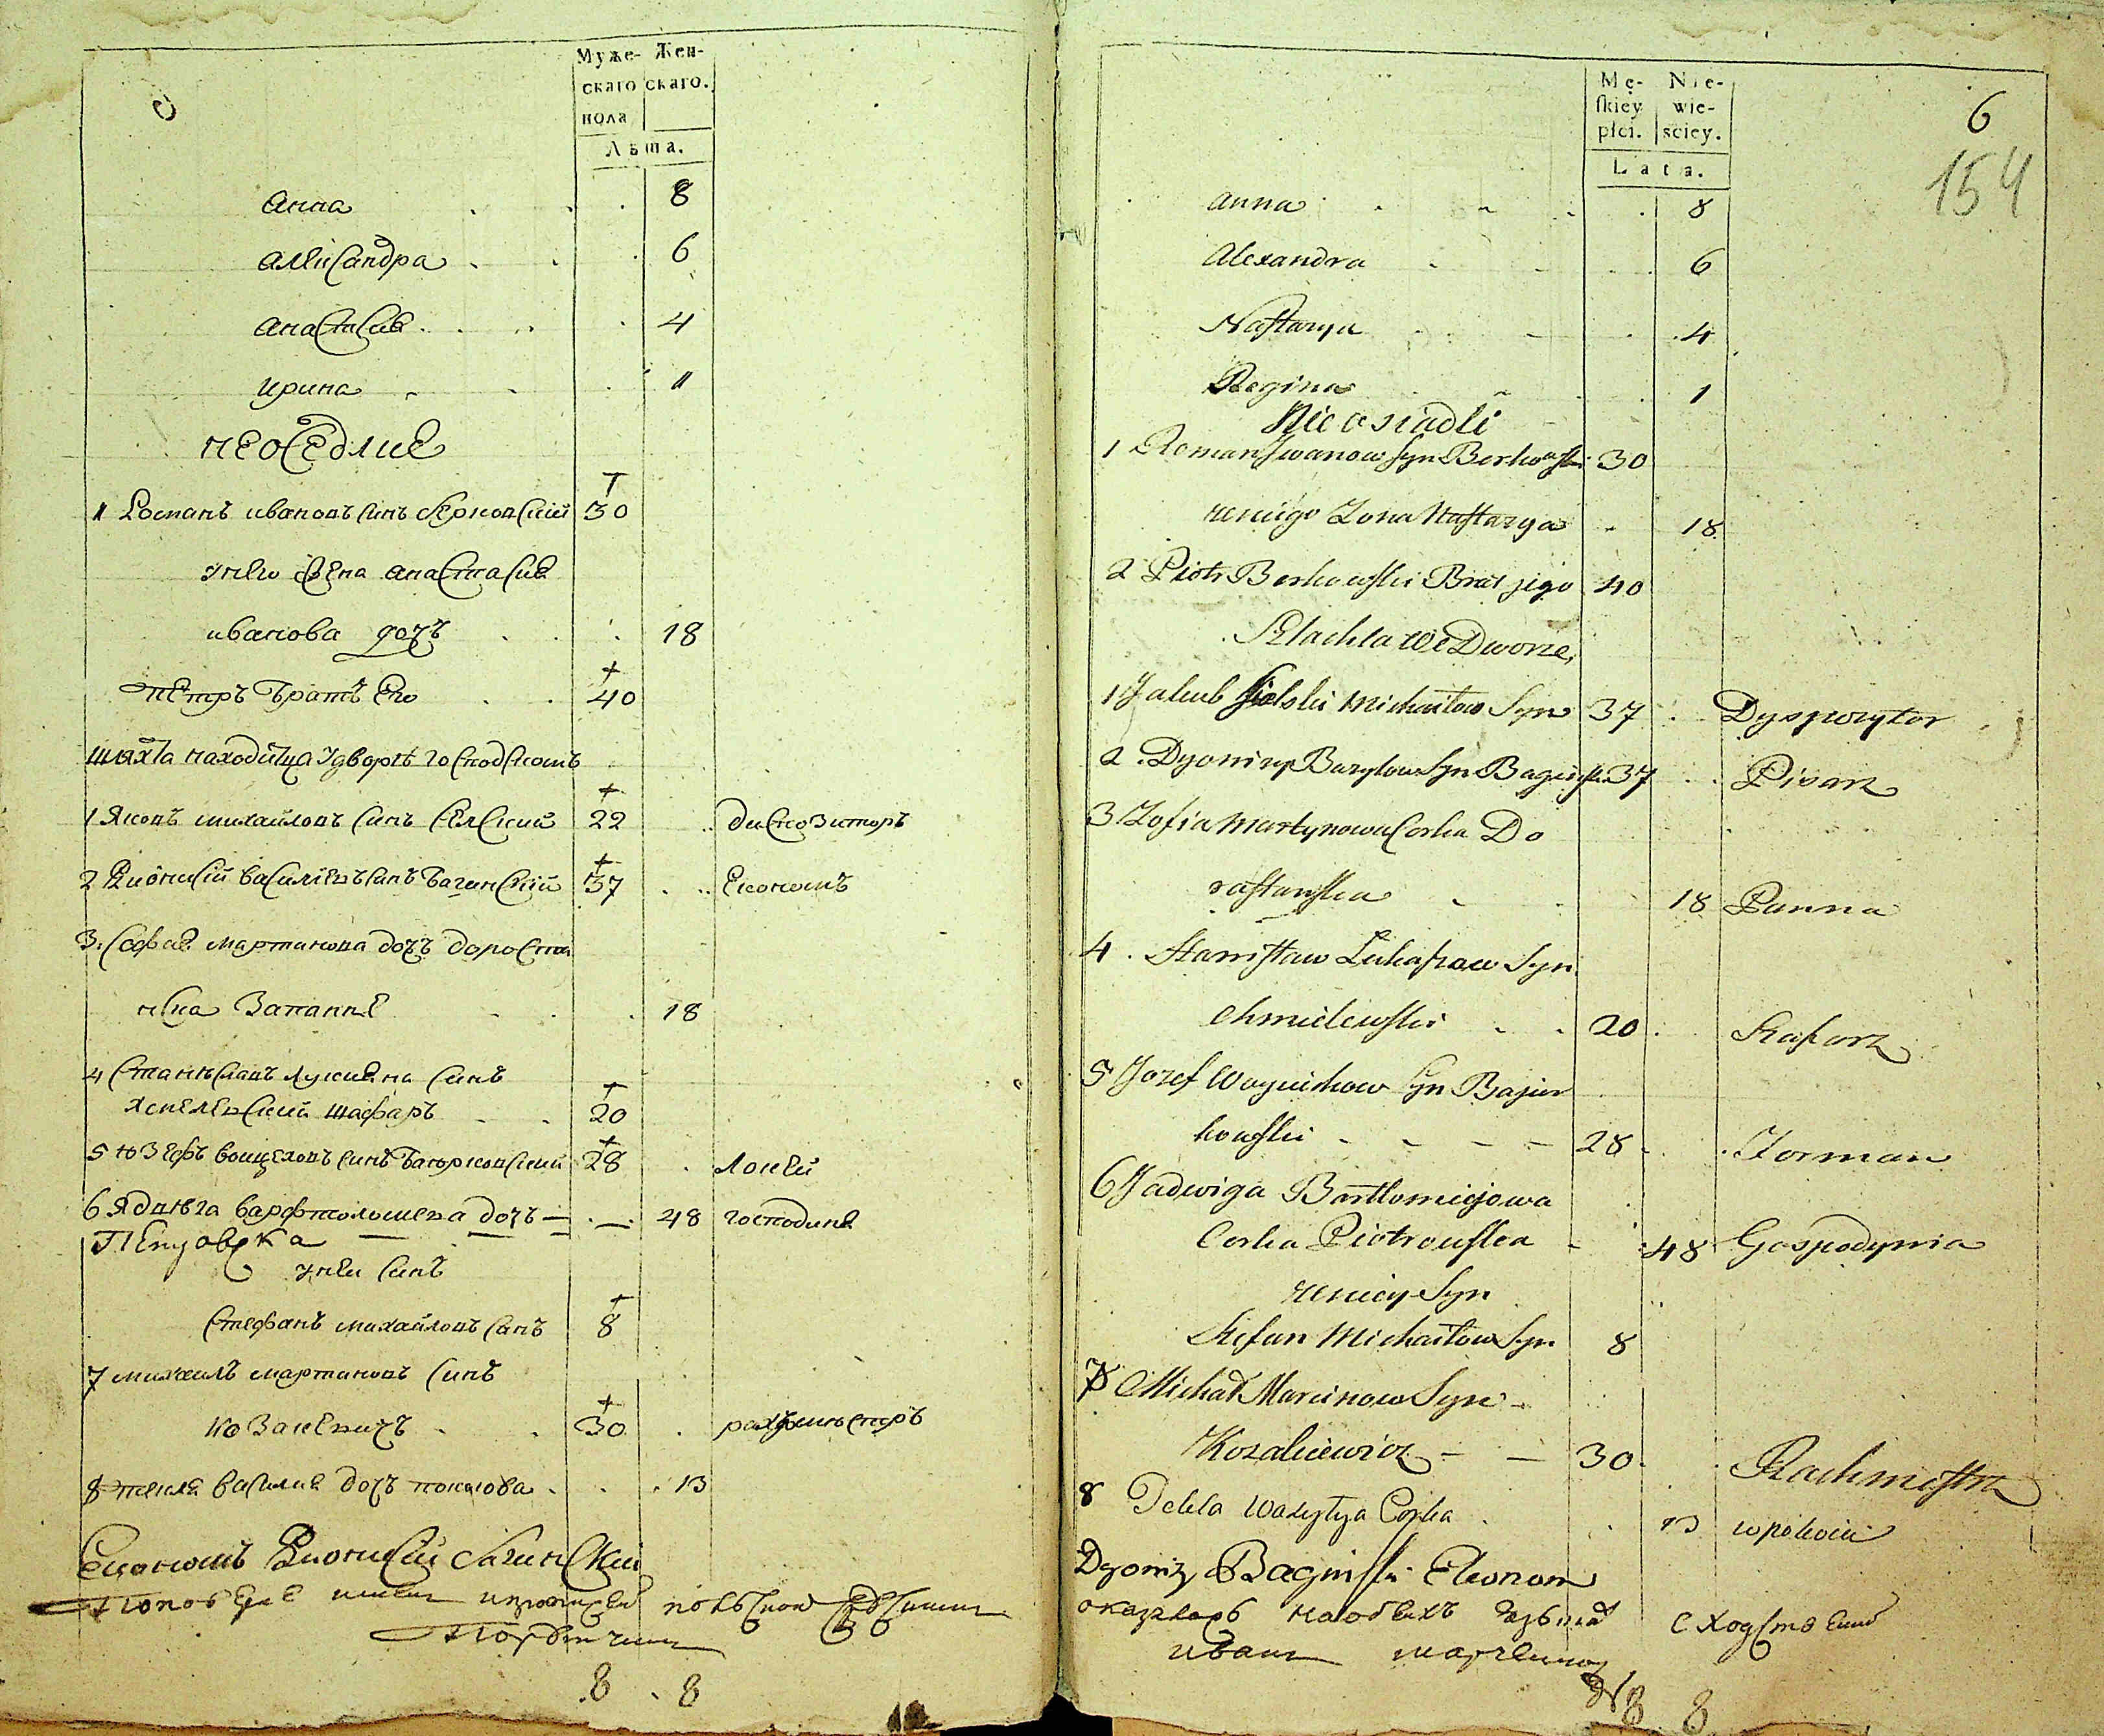 Муже- Жен-
скаго скаго.
пола
Лѣта.
Анна 8
Александра 6
Анастасия 4
Ирина 1
неоседлие
1 Романъ ивановъ синъ берковский 30
унего жена анастасия
иванова дочъ 18
Петръ братъ его 40
шляхта находитца удворѣ господскомъ
1 Яковъ михайловъ синъ 22 диспозиторъ
2 Дионисий василіевъ синъ багинский 37 Економъ
3. София мартинова дочъ дороста
нска Запанне 18
4 Станиславъ лукина синъ
хмелевский шафаръ 20
5 Юзефъ войцеховъ синъ баюрковский 28 локей
6 Ядвига варфоломиева дочъ 48 господиня
унеи синъ
Стефанъ михайловъ синъ 8
7 михаилъ мартиновъ синъ
козакевичъ 30 рахмистръ
8 текля василия дочъ покоюва 13
Економъ Дионисий Багинский
8 8
Mę- Nie-
ſkiey wie-
płci. ściey.
Lata.
6
154
Anna 8
Alexandra 6
Naſtazya 4
Regina 1
Nie osiadli
1 Roman Iwanow Syn Berkowſki 30
uniego Zona Naſtazya 18
2 Piotr Berkowſki Brat jego 40
Szlachta we Dworze,
1 Jakub Sielski Michaiłow Syn 37 Dyspozytor
2. Dyonizy Bazylow Syn Baginſki 37 Pisarz
3 Zofia Martynowa Corka Do
raſtanſka 18 Panna
4. Staniſław Łukaſzow Syn
Chmielewſki 20 Szafarz
5 Jozef Woyciechow Syn Bajur
kowſki 28 Forman
6 Jadwiga Bartłomiejowa
Corka Piotrowſka 48 Gospodynia
uniey Syn
Stefan Michaiłow Syn 8
7 Michał Marcinow Syn
Kozakiewicz 30 Rachmiſtrz
8 Tekla Wasylya Corka 13 wpokoiu
Dyonizy Baginſki Ekonom
8 8